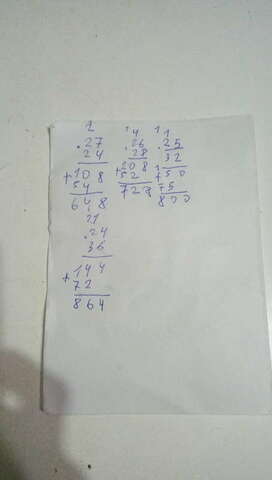 2
.27
24
+108
54
648
1 4
.26
28
+208
52
728
1 1
.25
32
+50
75
800
21
.24
36
+144
72
864